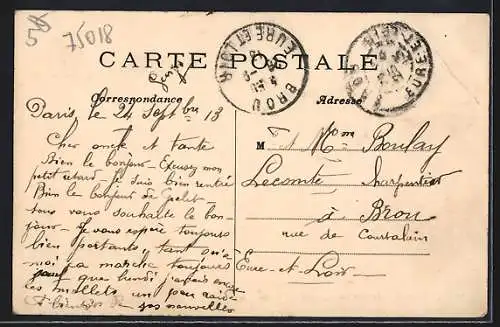 75018
CARTE POSTALE
BROU
EURE-ET-LOIR
EURE-ET-LOIR
Correspondance
Adresse
Paris, le 24 Septbre 13
Cher oncle et tante
Bien le bonjour - Excusez mon
petit retard - Je suis bien rentré
Bien le bonjour de
tous vous souhaite le bon-
jour - Je vous espère toujours
bien portants, tant qu'à
moi ça marche toujours
que lundi j'avais encore
les mollets un peu raides
A bientôt de
vos nouvelles
M r et Mme Boulay
Lecomte charpentier
à Brou
rue de Courtalain
Eure-et-Loir